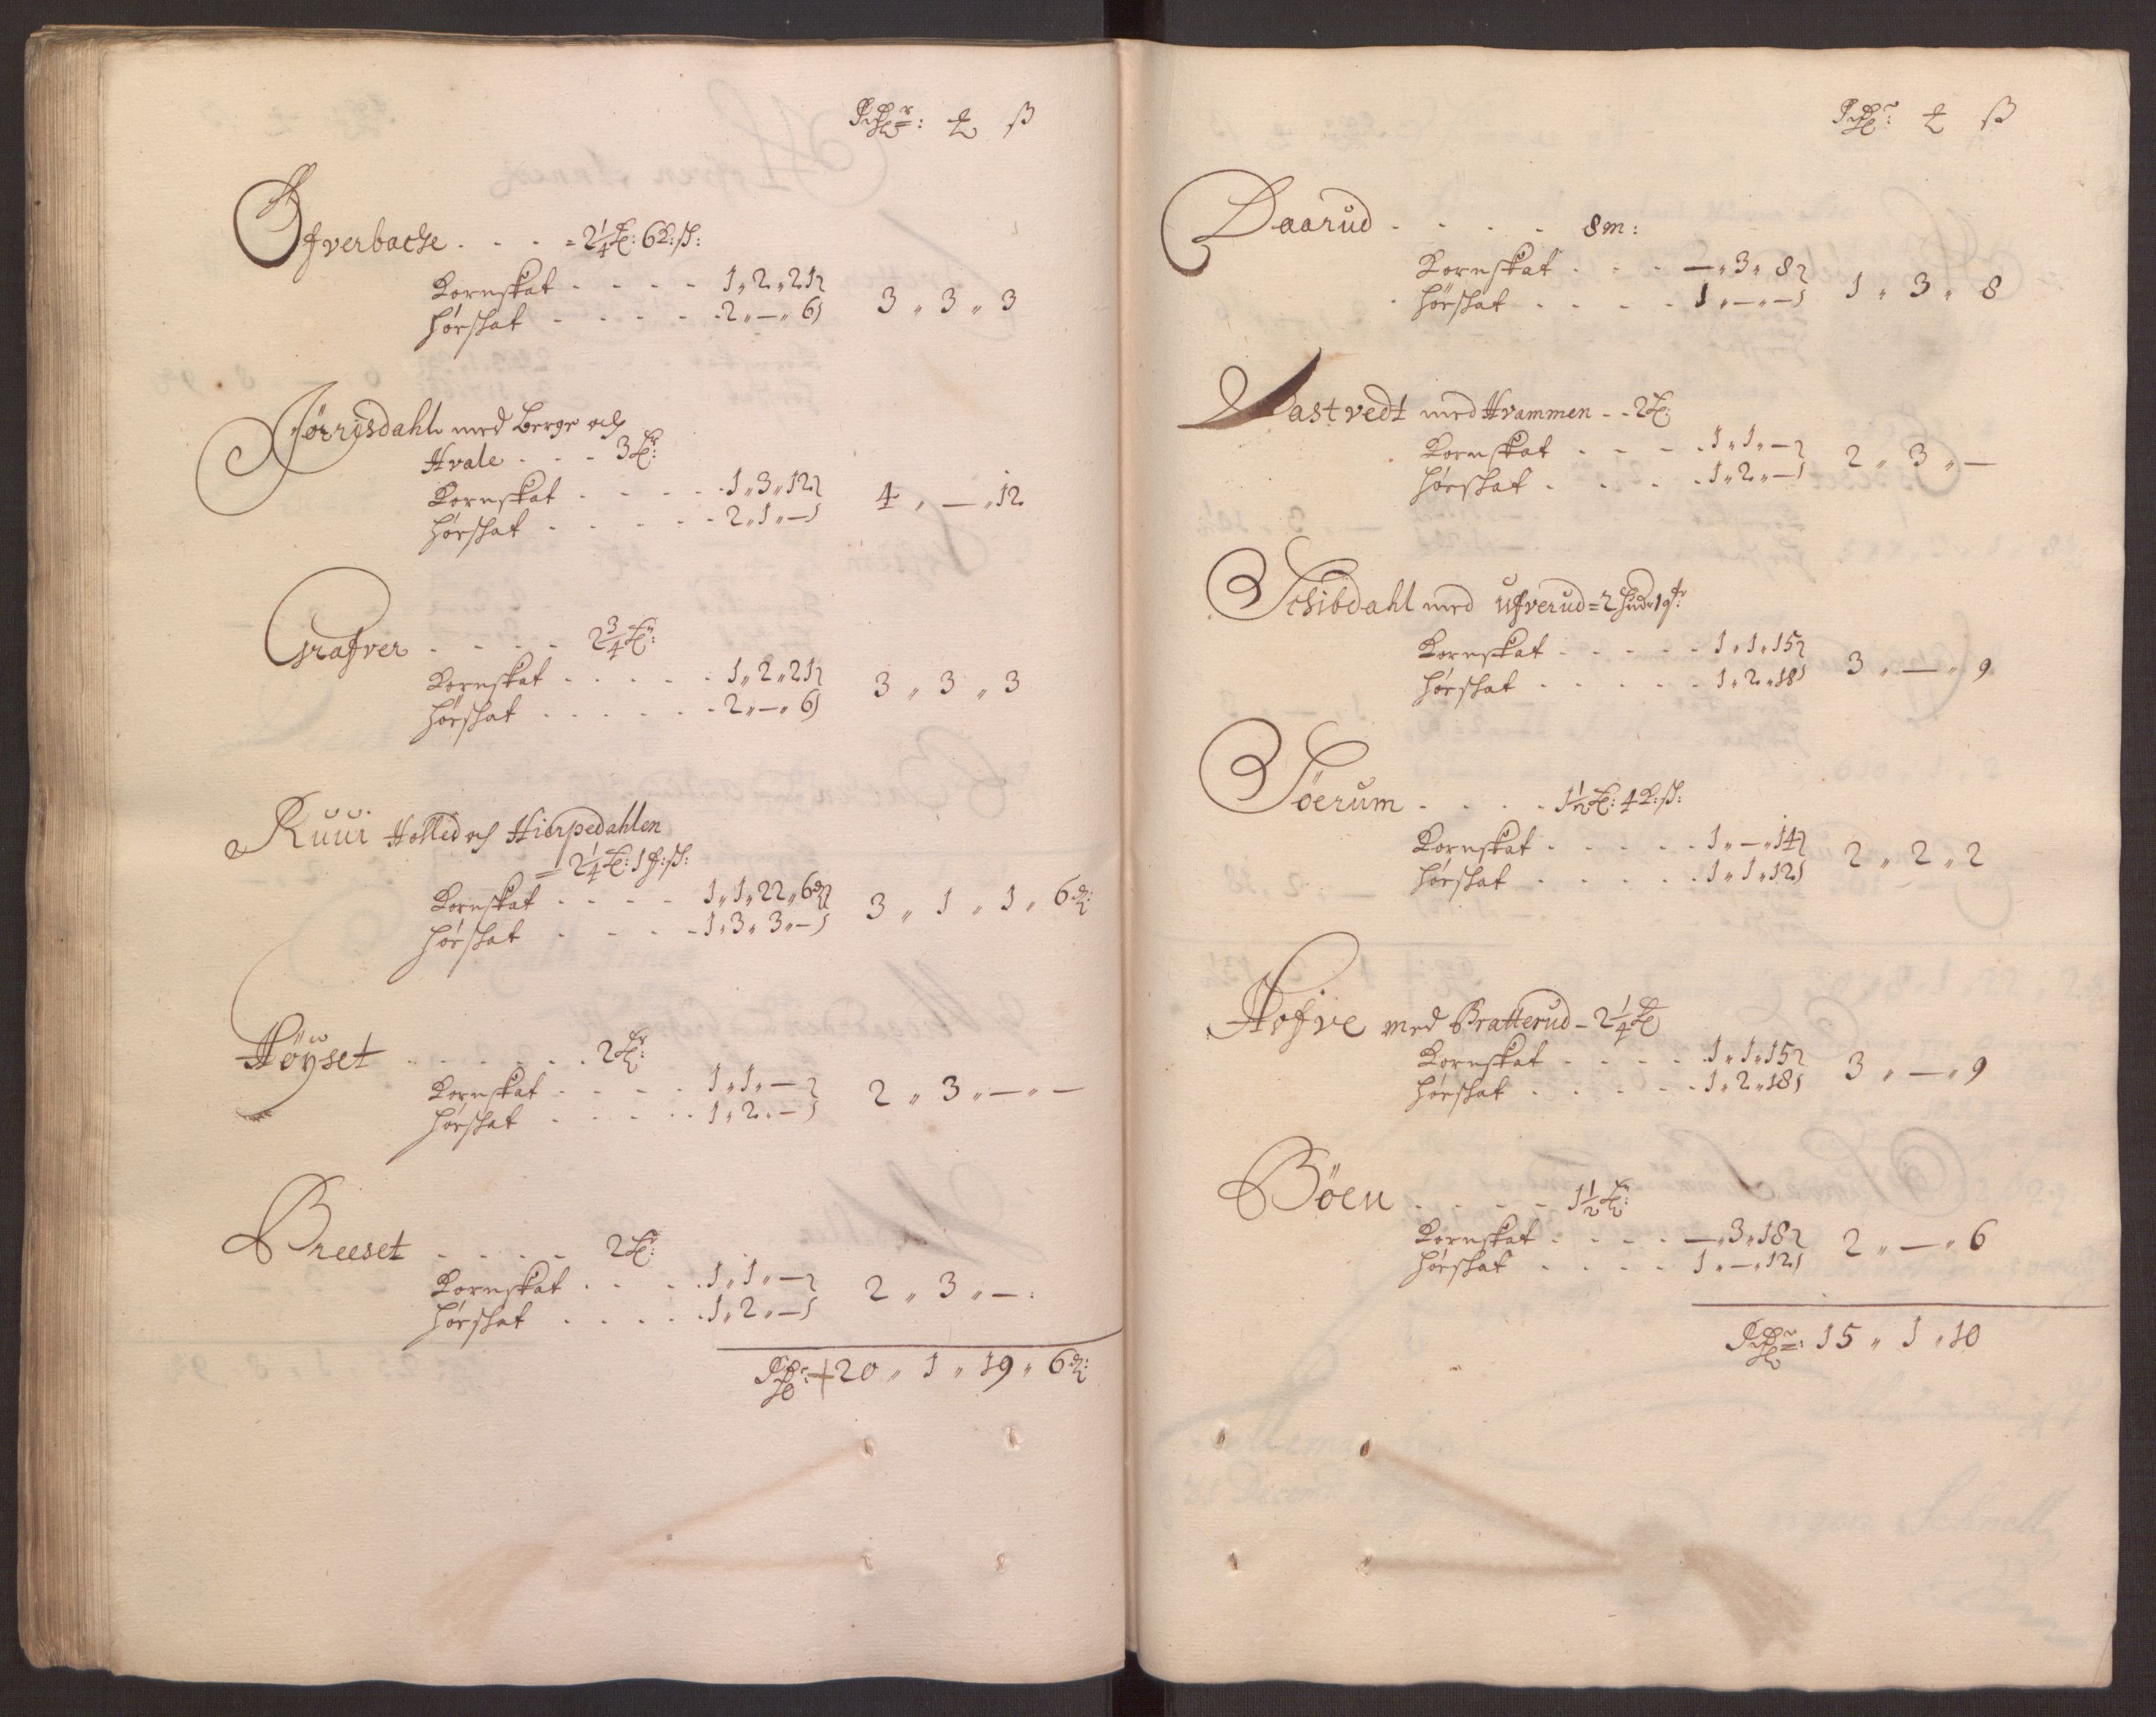 Rdr: ℔ ß
Ofverbache . . . = 2¼ ℔: 6 K: sl:
Kornskat . . . . 1 „ 2 „ 21
hørskat . . . . . 2 „ — „ 6 3 „ 3 „ 3
Jörrisdahl med Berge och
Hvale . . . 3 ℔:
Kornskat . . . . . 1 „ 3 „ 12
hørskat . . . . . 2 „ 1 „ — 4 „ — „ 12
Grafver . . . . 2¾ ℔:
Kornskat . . . . . 1 „ 2 „ 21
hørskat . . . . . . 2 „ — „ 6 3 „ 3 „ 3
Ruui Holled och Hierpedahlen
= 2¼ ℔: 1 f: sl:
Kornskat . . . . 1 „ 1 „ 22 „ 6 ₰
hørskat . . . . 1 „ 3 „ 3 „ — 3 „ 1 „ 1 „ 6 ₰:
Höÿset . . . . . . 2 ℔:
Kornskat . . . . 1 „ 1 „ —
hørskat . . . . . 1 „ 2 „ — 2 „ 3 „ — „ —
Breeset . . . . . 2 ℔:
Kornskat . . . . 1 „ 1 „ —
hørskat . . . . . 1 „ 2 „ — 2 „ 3 „ — :
Rdr: + 20 „ 1 „ 19 „ 6 ₰:
Rdr: ℔ ß
Daarud . . . . 8 m:
Kornskat . . . — „ 3 „ 8
hørskat . . . . 1 „ — „ — 1 „ 3 „ 8
Vastvedt med Hvammen - - 2 ℔:
Kornskat . . . . 1 „ 1 „ —
hørskat . . . . 1 „ 2 „ — 2 „ 3 „ —
Schibdahl med Ufverud = 2 hud 1 f:
Kornskat . . . . . 1 „ 1 „ 15
hørskat . . . . . 1 „ 2 „ 18 3 „ — „ 9
Söerum . . . . 1½ ℔: 4 K: sl:
Kornskat . . . . . 1 „ — „ 14
hørskat . . . . . 1 „ 1 „ 12 2 „ 2 „ 2
Hofve med Bratterud - 2¼ ℔
Kornskat . . . . . 1 „ 1 „ 15
hørskat . . . . . 1 „ 2 „ 18 3 „ — „ 9
Böen . . . . 1½ ℔:
Kornskat . . . . — „ 3 „ 18
hørskat . . . . 1 „ — „ 12 2 „ — „ 6
Rdr: 15 „ 1 „ 10